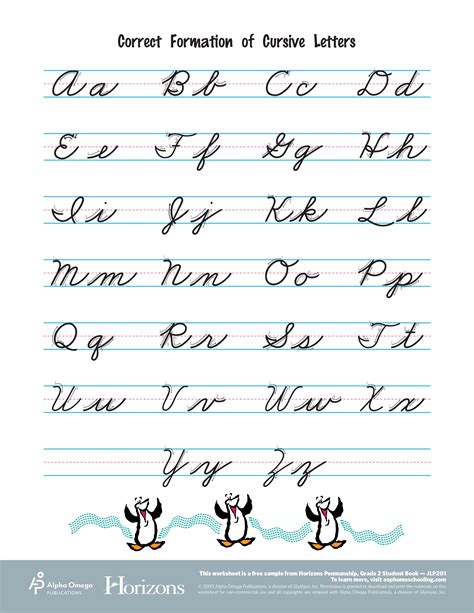 Correct Formation of Cursive Letters
Aa Bb Cc Dd
Ee Ff Gg Hh
Ii Jj Kk Ll
Mm Nn Oo Pp
Qq Rr Ss Tt
Uu Vv Ww Xx
Yy Zz
Alpha Omega
PUBLICATIONS
Horizons
This worksheet is a free sample from Horizons Penmanship, Grade 2 Student Book — JLP201
To learn more, visit aophomeschooling.com
© 2000 Alpha Omega Publications, a division of Glynlyon, Inc. Permission is granted to download and print the materials on this
worksheet for non-commercial use and all images are copyright to and retained from Alpha Omega Publications, a division of Glynlyon, Inc.